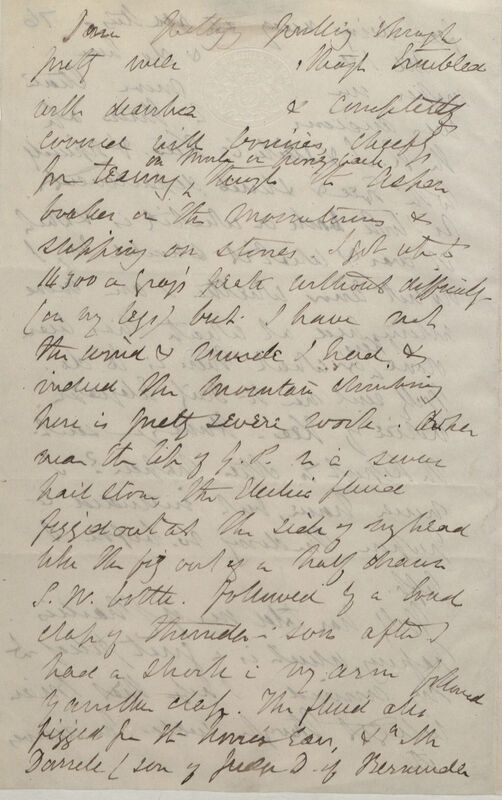 I am getting pulling through
pretty well though troubled
with diarrhea & completely
covered with bruises, chiefly
on mule or pony back
for tearing through the Aspen
bushes on the mountains &
slipping on stones. I got up to
14300 a Gray's peak without difficulty
(on my legs) but I have not
the wind & muscle I had, &
indeed the mountain climbing
here is pretty severe work. When
near the top of G. P. in a severe
hail storm the Electric fluid
fizzed out at the side of my head
like the fizz out of a half drawn
S. W. bottle. followed by a loud
clap of thunder - soon after I
had a shock i my arm followed
by another clap. The fluid also
fizzed from the horse's Ears, & a Mr
Darrell (son of Judge D. of Bermuda